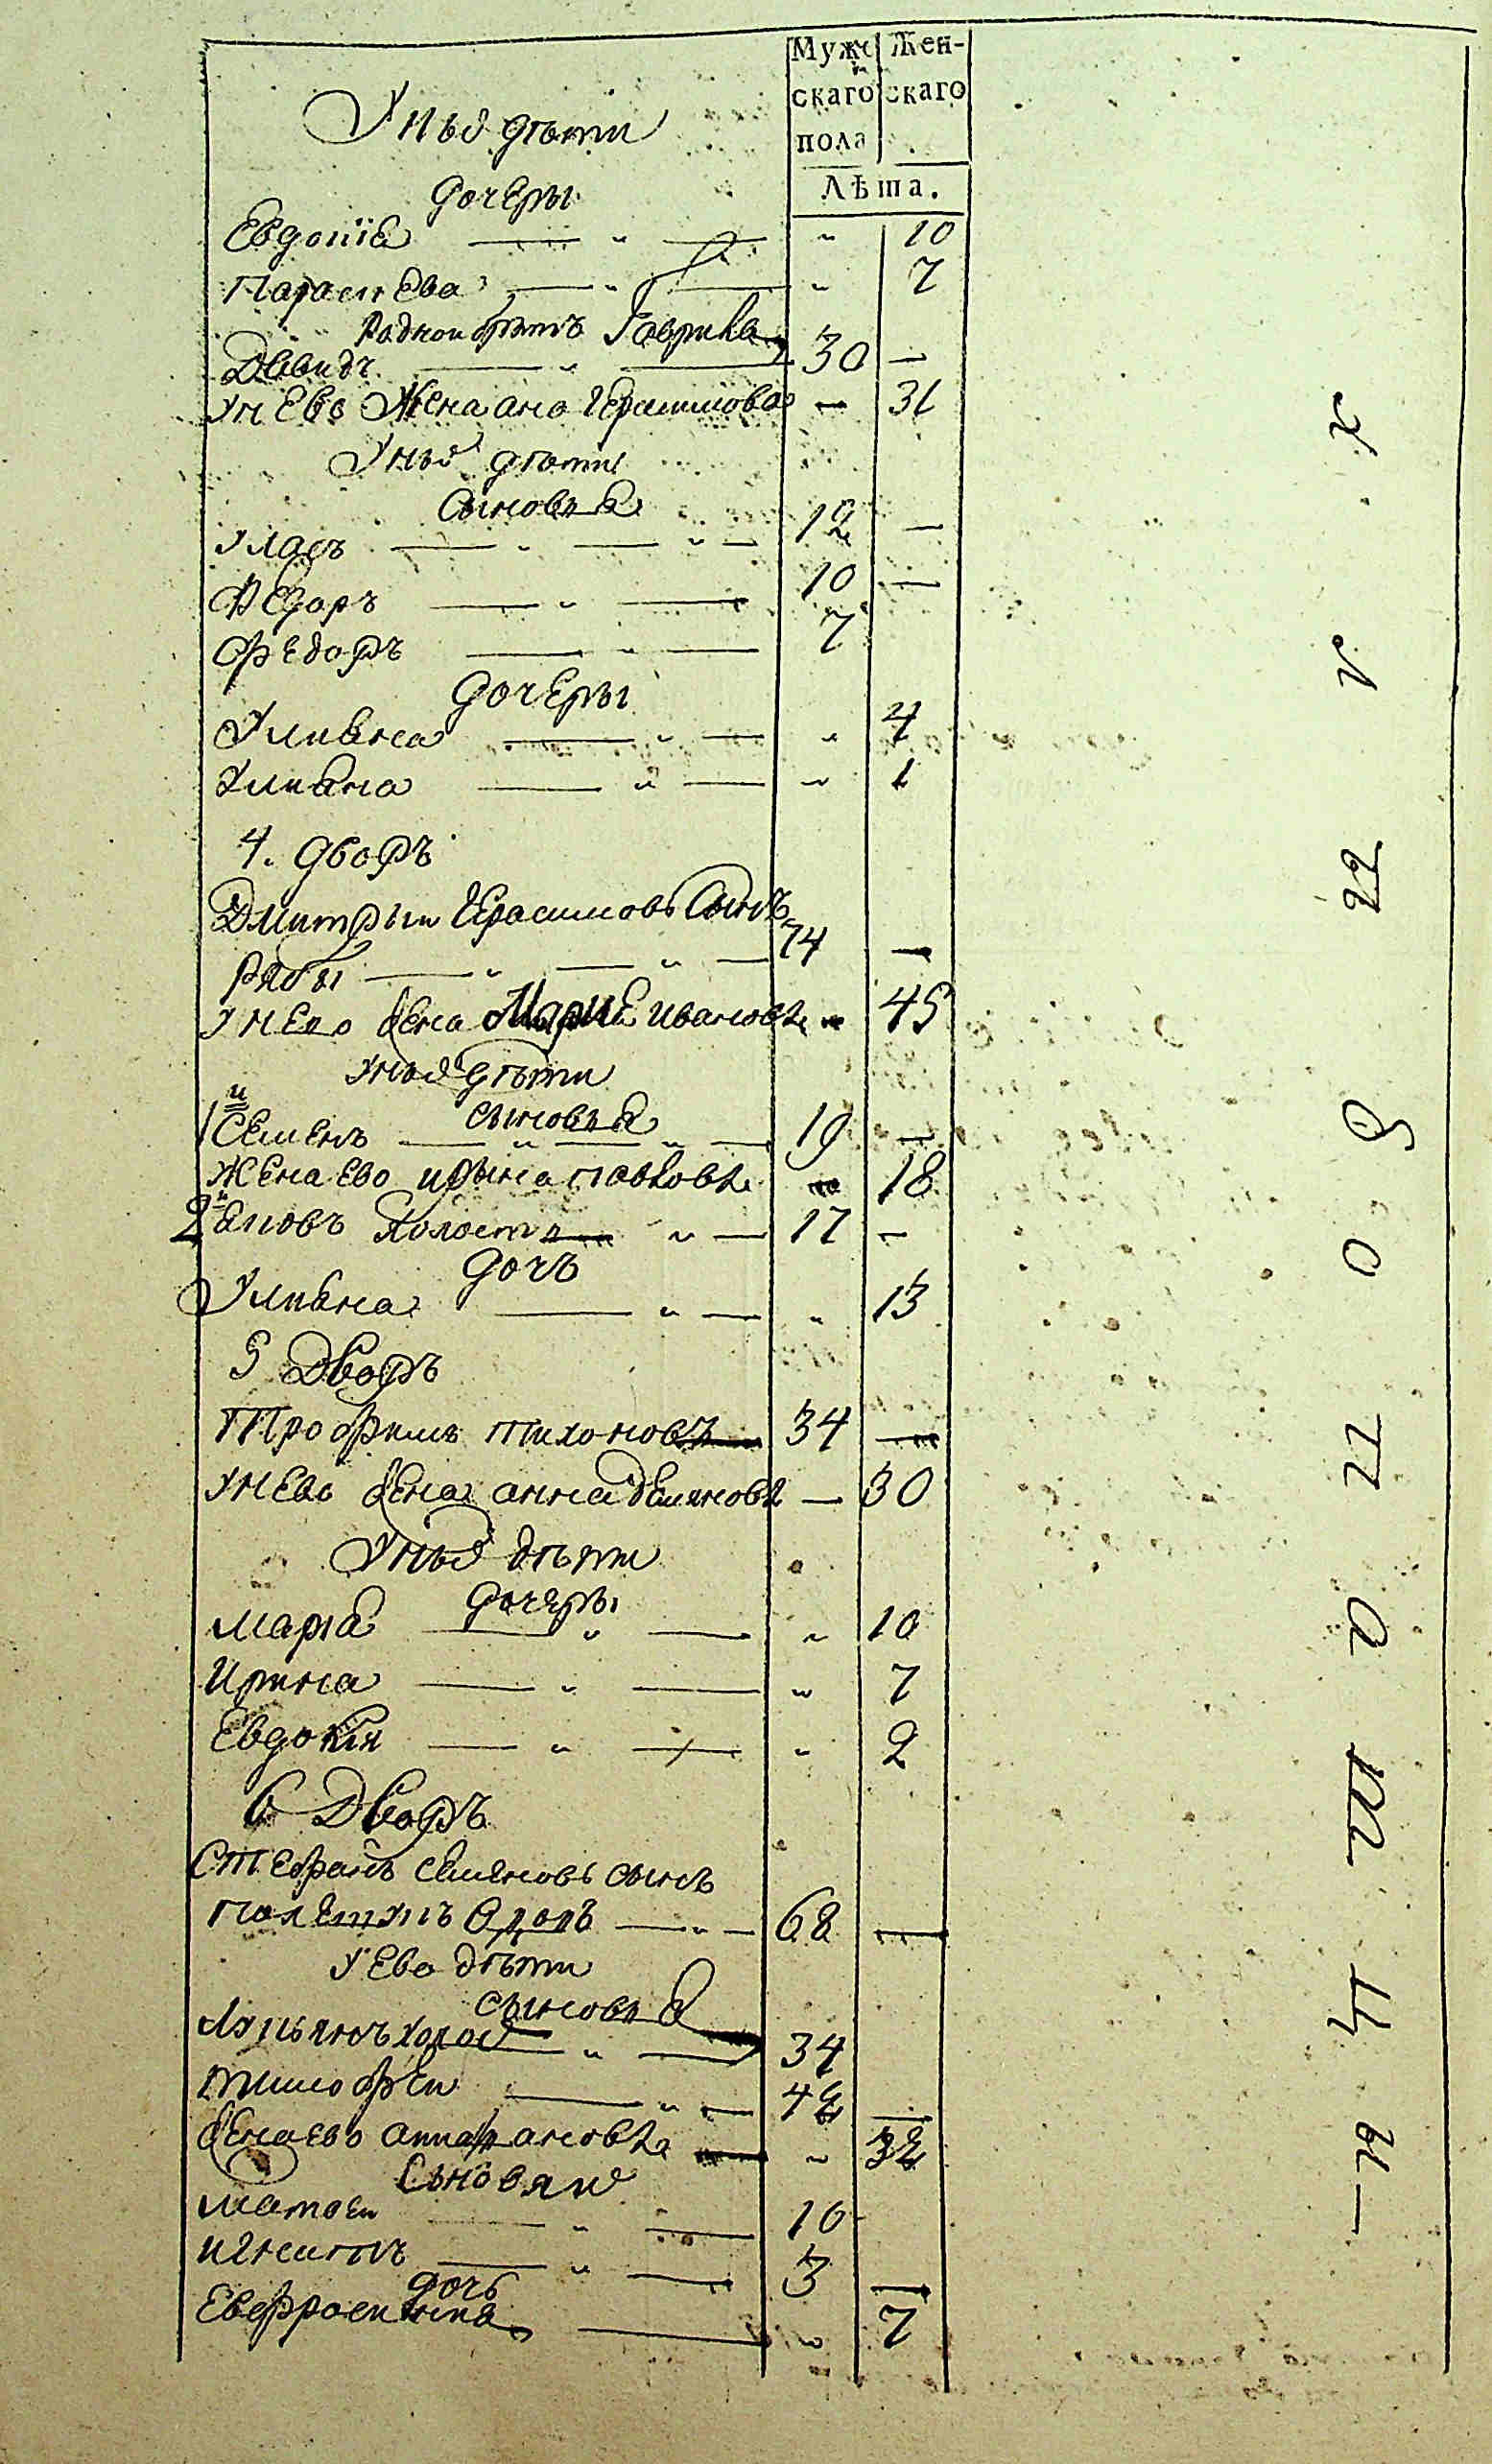 Мужс Жен-
скаго скаго
пола
Лѣта.
Унихъ дѣти
дочеры
Евдокіа 10
Параскева 7
Родной братъ Гаврила
Давидъ 30 —
У нево Жена ана Герасимова — 31
Унихъ дѣти
Сыновья
Уласъ 12 —
Федоръ 10 —
Федоръ 7
дочеры
Ульяна 4
Ульяна 1
4. дворъ
Дмитрыи Герасимовъ Сынъ
Рябы 74 —
У нево жена Мария Ивановѣ 45
Унихъ дѣти
сыновья
1й Семенъ 19 —
Жена ево ирына павловѣ — 18
2й Яковъ Холостъ 17 —
дочъ
Ульяна 13
5 Дворъ
Трофимъ тихоновъ 34 —
У нево жена анна демяновѣ — 30
Унихъ дѣти
дочеры
Мариа 10
Ирина 7
Евдокия 2
6 Дворъ
Стефанъ семяновъ сынъ
68 —
У ево дѣти
сыновья
Лукьянъ холос 34
Тимофеи 42 —
жена ево анна 32
Сыновяи
Матвеи 10
Игнатъ 3 —
дочъ
Евфросиния 7